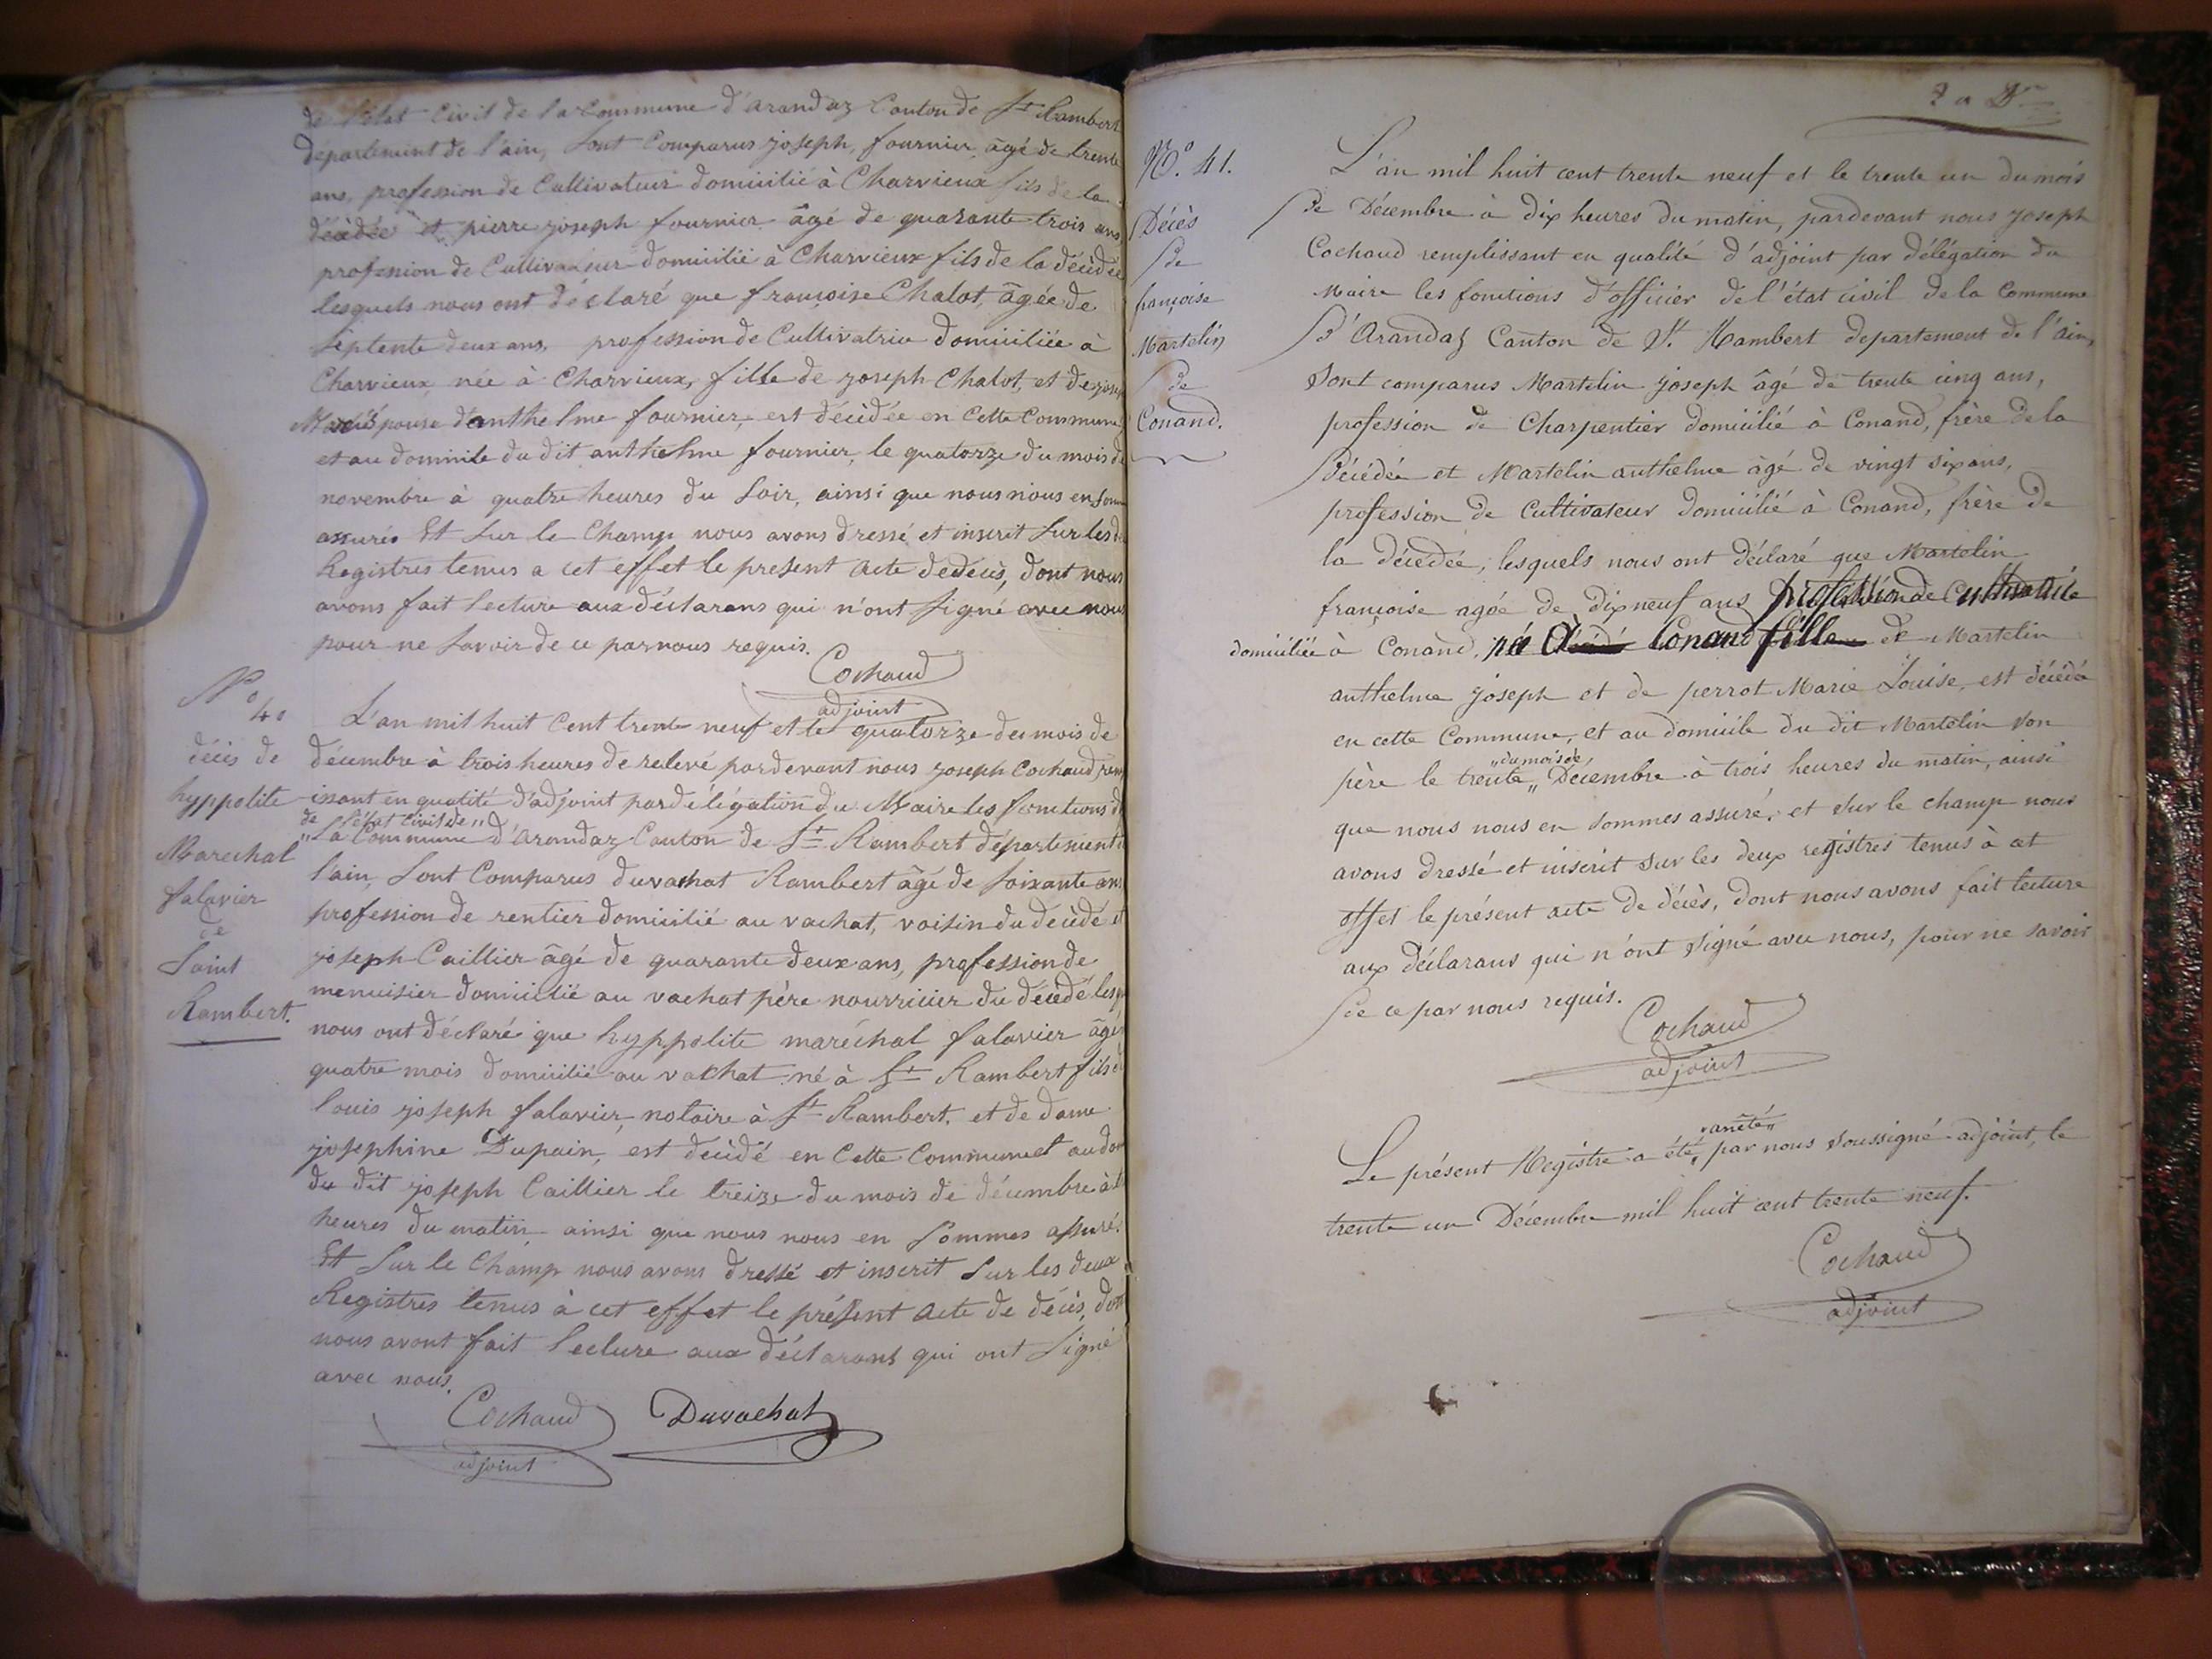 de l'état Civil de la Commune d'arandaz Canton de St Rambert
département de l'ain, Sont Comparus joseph, fournier, âgé de trente
ans, profession de Cultivateur domicilié à Charvieux fils de la
décédée et pierre joseph fournier âgé de quarante trois ans
profession de Cultivateur domicilié à Charvieux fils de la décédée
lesquels nous ont déclaré que françoise Chalot, âgée de
Septente deux ans, profession de Cultivatrice domiciliée à
Charvieux née à Charvieux, fille de joseph Chalot, et de
épouse d'anthelme fournier, est décédée en Cette Commune
et au domicile du dit anthelme fournier, le quatorze du mois de
novembre à quatre heures du Soir, ainsi que nous nous en Somm
assurés Et Sur le Champ nous avons dressé et inscrit Sur les d
Registres tenus a cet effet le present acte de décès, dont nous
avons fait lecture aux déclarans qui n'ont Signé avec nous
pour ne Savoir de ce par nous requis.
Cochaud
adjoint
N° 40
décès de
hyppolite
Marechal
falavier
de
Saint
Rambert.
L'an mil huit Cent trente neuf et le quatorze du mois de
décembre à trois heures de relevé pardevant nous joseph Cochaud remp
issant en qualité d'adjoint par délégation du Maire les fonctions d
de l'état civil de
la Commune d'arandaz Canton de St Rambert département d
l'ain, Sont Comparus duvachat Rambert âgé de Soixante ans
profession de rentier domicilié au vachat, voisin du décédé et
joseph Caillier âgé de quarante deux ans, profession de
menuisier domicilié au vachat père nourricier du décédé lesq
nous ont déclaré que hyppolite maréchal falavier âgé
quatre mois domicilié au vachat né à St Rambert fils d
louis joseph falavier, notaire à St Rambert, et de dame
josephine Dupain, est décédé en Cette Commune et au dom
du dit joseph Caillier le treize du mois de décembre à
heures du matin ainsi que nous nous en Sommes assuré.
Et Sur le Champ nous avons dressé et inscrit Sur les deux
Registres tenus à cet effet le présent acte de décès, dont
nous avont fait lecture aux déclarans qui ont Signé
avec nous.
Cochaud Duvachat
adjoint
N.° 41.
Décès
de
françoise
Martelin
de
Conand.
L'an mil huit cent trente neuf et le trente un du mois
de Décembre à dix heures du matin, pardevant nous joseph
Cochaud remplissant en qualité d'adjoint par délégation du
Maire les fonctions d'officier de l'état civil de la Commune
d'Arandaz Canton de St. Rambert departement de l'ain,
Sont comparus Martelin joseph âgé de trente cinq ans,
profession de Charpentier domicilié à Conand, frère de la
décédée et Martelin anthelme âgé de vingt six ans,
profession de Cultivateur domicilié à Conand, frère de
la décédée, lesquels nous ont déclaré que Martelin
françoise agée de dix neuf ans profession de Cultivatrice
domiciliée à Conand, née à Conand fille de Martelin
anthelme joseph et de perrot Marie Louise, est décédée
en cette Commune, et au domicile du dit Martelin son
„du mois de
père le trente „ Décembre à trois heures du matin, ainsi
que nous nous en sommes assuré, et sur le champ nous
avons dressé et inscrit sur les deux registres tenus à cet
effet le présent acte de décès, dont nous avons fait lecture
aux déclarans qui n'ont signé avec nous, pour ne savoir
de ce par nous requis.
Cochaud
adjoint
„arrêté„
Le présent Registre a été „ par nous soussigné adjoint, le
trente un Décembre mil huit cent trente neuf.
Cochaud
adjoint